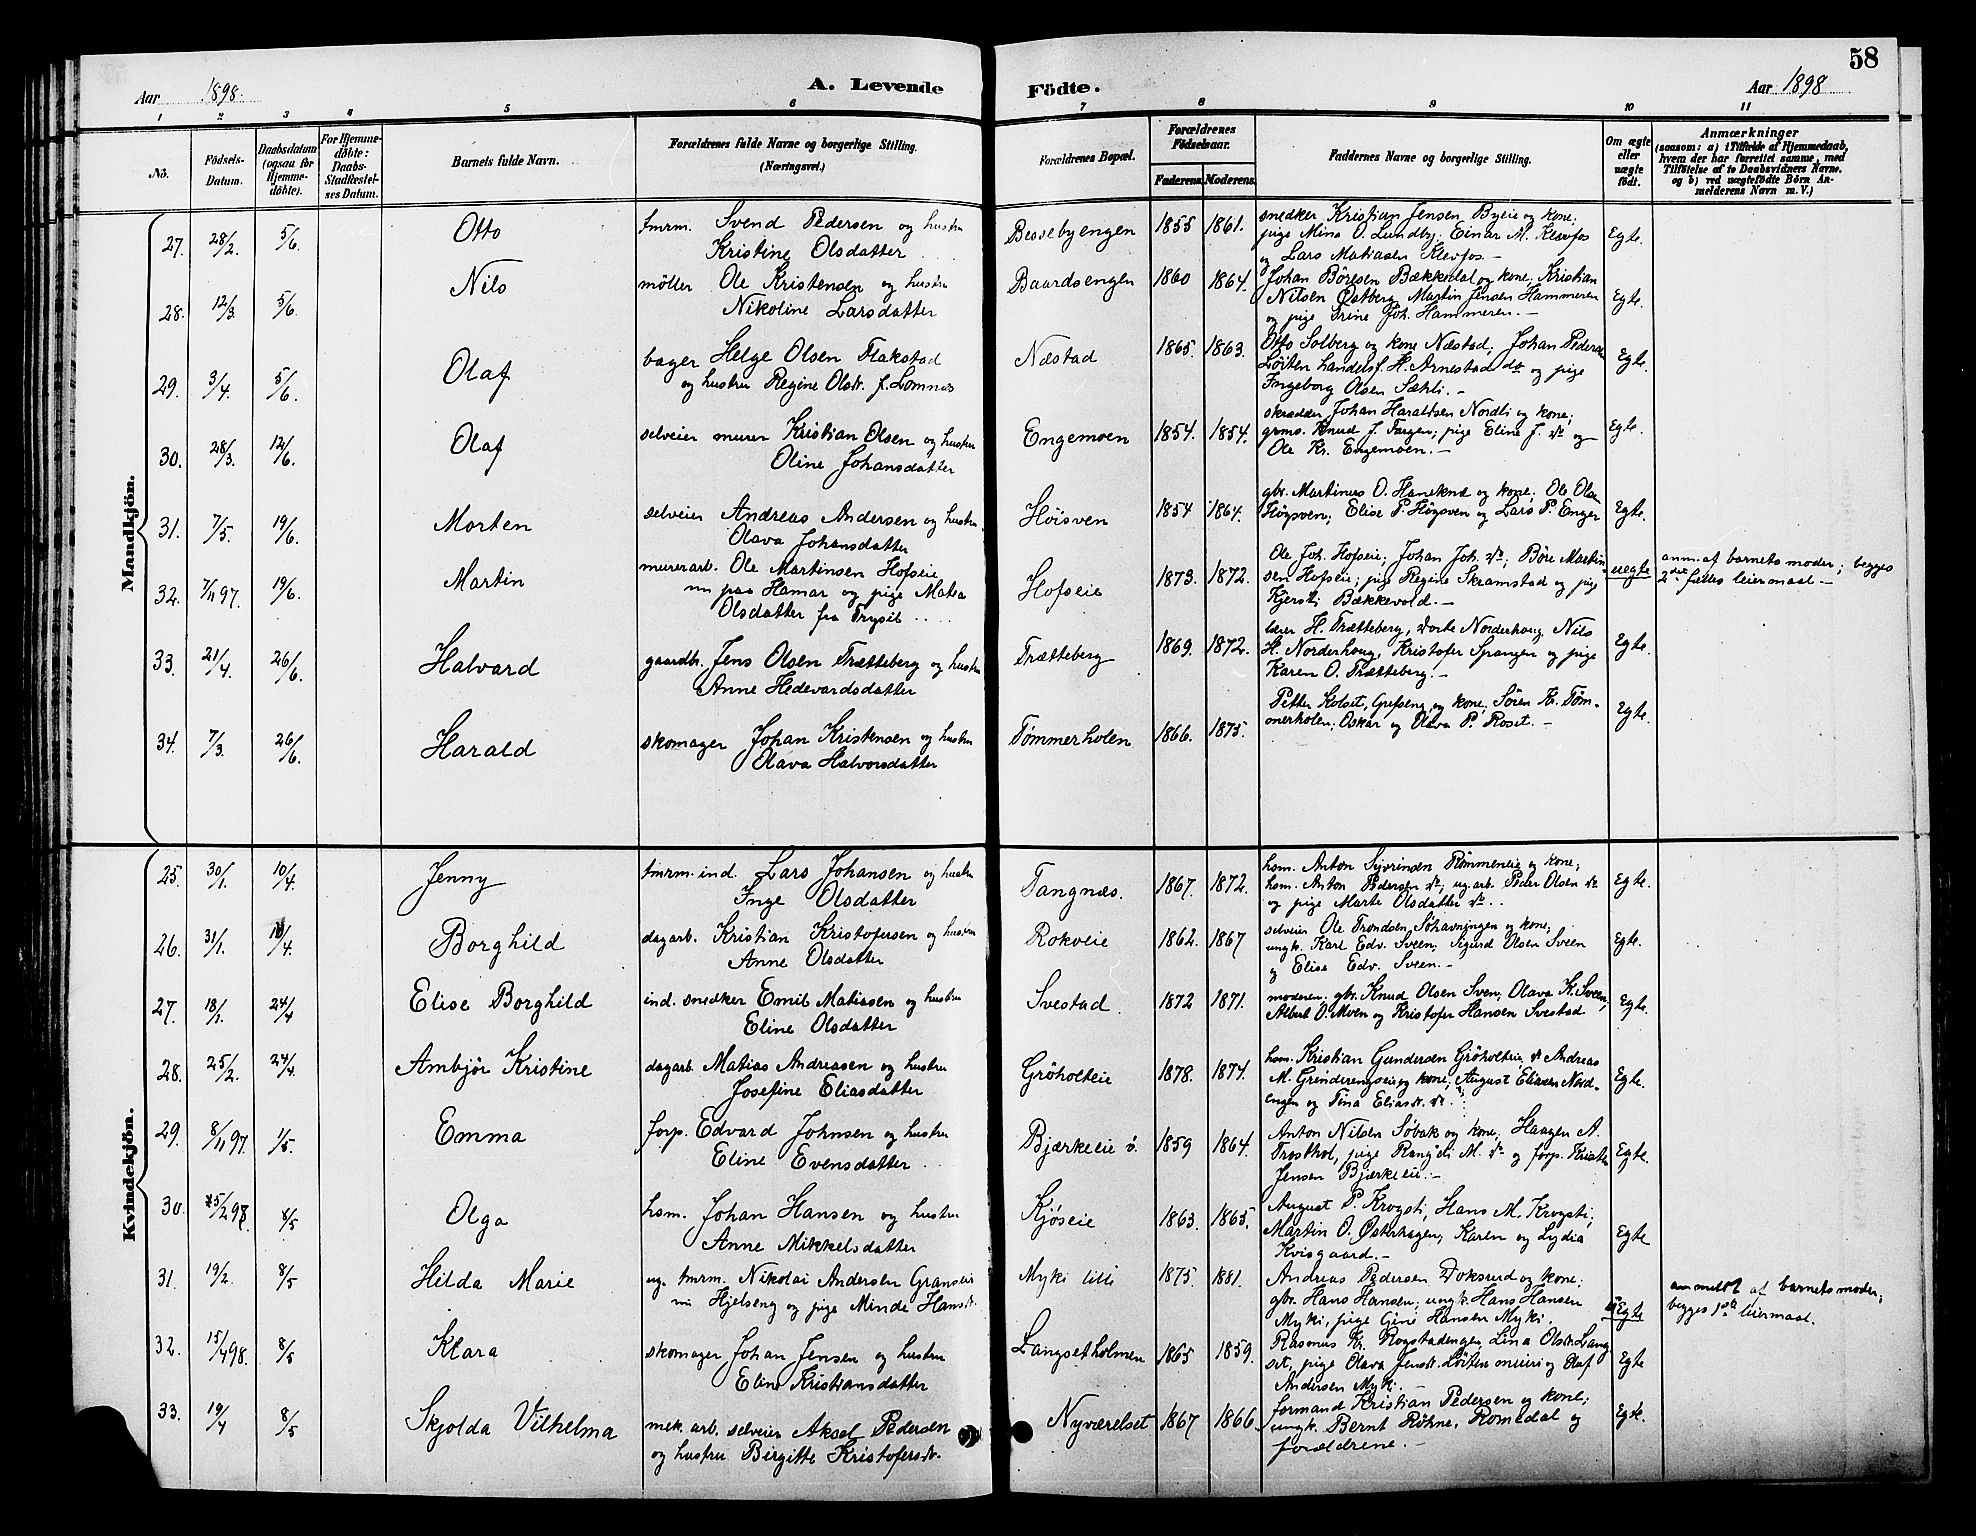 58
Aar 1898. A. Levende Födte. Aar 1898
1 2 3 4 5 6 7 8 9 10 11
No. Födsels-Datum. Daabsdatum (ogsaa for Hjemme-döbte). For Hjemme-döbte: Daabs-Stadfæstelses Datum. Barnets fulde Navn. Forældrenes fulde Navne og borgerlige Stilling. (Næringsvei.) Forældrenes Bopæl. Forældrenes Födselsaar. Faderens. Moderens. Faddernes Navne og borgerlige Stilling. Om ægte eller uægte födt. Anmærkninger (saasom: a) i Tilfælde af Hjemmedaab, hvem der har forrettet samme, med Tilföielse af to Daabsvidners Navne, og b) ved uægtefödte Börn Anmelderens Navn m. V.)
Mandkjön.
27. 28/2. 5/6. Otto tmrm. Svend Pedersen og hustru
Kristine Olsdatter
Bessebyengen 1855 1861. snedker Kristian Jensen Byeie og kone;
pige Mina O. Lundby; Einar M. Klevfos
og Lars Matiasen Klevfos.—
Egte.
28. 12/3. 5/6. Nils möller Ole Kristensen og hustru
Nikoline Larsdatter
Baardsengen 1860 1864. Johan Böresen Bækkedal og kone; Kristian
Nilsen Østberg, Martin Jensen Hammeren
og pige Trine Joh. Hammeren.—
Egte.
29. 3/4. 5/6. Olaf bager Helge Olsen Flakstad
og hustru Regine Olsdr. f. Lomnæs
Næstad 1865. 1863. Otto Solberg og kone Næstad; Johan Pedersen
Löiten handelsf. H. Arnestad do og pige
Ingeborg Olsen Sæhli.—
Egte.
30. 28/3. 12/6. Olaf selveier murer Kristian Olsen og hustru
Oline Johansdatter
Engemoen 1854. 1854. skrædder Johan Haraldsen Nordli og kone;
grms. Knud J. Fargen; pige Eline J. do og
Ole Kr. Engemoen.—
Egte.
31. 7/5. 19/6. Morten selveier Andreas Andersen og hustru
Olava Johansdatter
Höisven 1854 1864. gbr. Martinus O. Haneknæ og kone; Ole Olsen
Högsven; Elise P. Högsven og Lars P. Enger
Egte.
32. 7/11 97. 19/6. Martin murerarb. Ole Martinsen Hofseie
nu paa Hamar og pige Matea
Olsdatter fra Trysil
Hofseie 1873. 1872. Ole Joh. Hofseie; Johan Joh. do; Böre Martin-
sen Hofseie; pige Regine Skramstad og pige
Kjersti Bækkevold.—
uegte anm. af barnets moder; begges
2det fælles leiermaal—
33. 21/4. 26/6. Halvard gaardbr. Jens Olsen Trætteberg og hustru
Anne Hedevardsdatter
Trætteberg 1869. 1872. lærer H. Trætteberg, Dorte Norderhoug, Nils
H. Norderhoug, Kristofer Spangen og pige
Karen O. Trætteberg.—
Egte.
34. 7/3. 26/6. Harald skomager Johan Kristensen og hustru
Olava Halvorsdatter
Tömmerholen 1866. 1875. Petter Kolset, Grefseng og kone, Sören Kr. Töm-
merholen; Oskar og Olava P. Roset.—
Egte.
Kvindekjön.
25. 30/1. 10/4. Jenny tmrm. ind. Lars Johansen og hustru
Inge Olsdatter
Tangnæs. 1867. 1872. hsm. Anton Syverinsen Römmeneie og kone;
hsm. Anton Pedersen do; ug. arb. Peder Olsen do
og pige Marte Olsdatter do.
Egte.
26. 31/1. /4. Borghild dagarb. Kristian Kristofersen og hustru
Anne Olsdatter
Rokveie 1862. 1867 selveier Ole Trondsen Söhavningen og kone;
ungk. Karl Edv. Sveen; Sigurd Olsen Sveen
og Elise Edv. Sveen.—
Egte.
27. 18/1. 24/4 Elise Borghild ind. snedker Emil Matiasen og hustru
Eline Olsdatter
Svestad 1872 1871. moderen; gbr. Knud Olsen Sven; Olava K. Sveen;
Albert O. Moen og Kristofer Hansen Svestad
Egte.
28. 25/2. 24/4 Ambjör Kristine dagarb. Matias Andreasen og hustru
Josefine Eliasdatter
Gröholteie 1878. 1874. hsm. Kristian Gundersen Gröholteie, do Andreas
M. Grinderengseie og kone; August Eliasen Nord-
engen og Tina Eliasdr. do.
Egte.
29. 8/11 97. 1/5. Emma forp. Edvard Johnsen og hustru
Eline Evensdatter
Bjærkeeie ö. 1859 1864. Anton Nilsen Söbak og kone; Haagen A.
Trosthol, pige Rangdi M. do og forp. Krister
Jensen Bjærkeeie.—
Egte.
30. 25/2 98. 8/5 Olga hsm. Johan Hansen og hustru
Anne Mikkelsdatter
Kjöseie 1863. 1865. August P. Krogsti, Hans M. Krogsti,
Martin O. Østerhagen, Karen og Lydia
Kvisgaard.—
Egte
31. 19/2. 8/5 Hilda Marie ug. tmrm. Nikolai Andersen Granseie
nu Hjelseng og pige Minda Hansdr.
Myki lille 1875. 1881. Andreas Pedersen Doksrud og kone;
gbr. Hans Hansen; ungk. Hans Hansen
Myki, pige Gine Hansen Myki.
uEgte anmeldt af barnets moder;
begges 1ste leiermaal.
32. 15/4 98. 8/5 Klara skomager Johan Jensen og hustru
Eline Kristiansdatter
Langsetholmen 1865 1859. Rasmus Kr. Rogstadengen, Lina Olsdr. Lang-
set, pige Olava Jensdr. Löiten meieri og Olaf
Andersen Myki.
Egte
33. 19/4 8/5 Skjolda Vilhelma mek. arb. selveier Aksel Pedersen
og hustru Birgitte Kristofersdr.
Nyværelset 1867 1866. formand Kristian Pedersen og kone;
ungk. Bernt Röhne, Romedal og
forældrene.—
Egte.